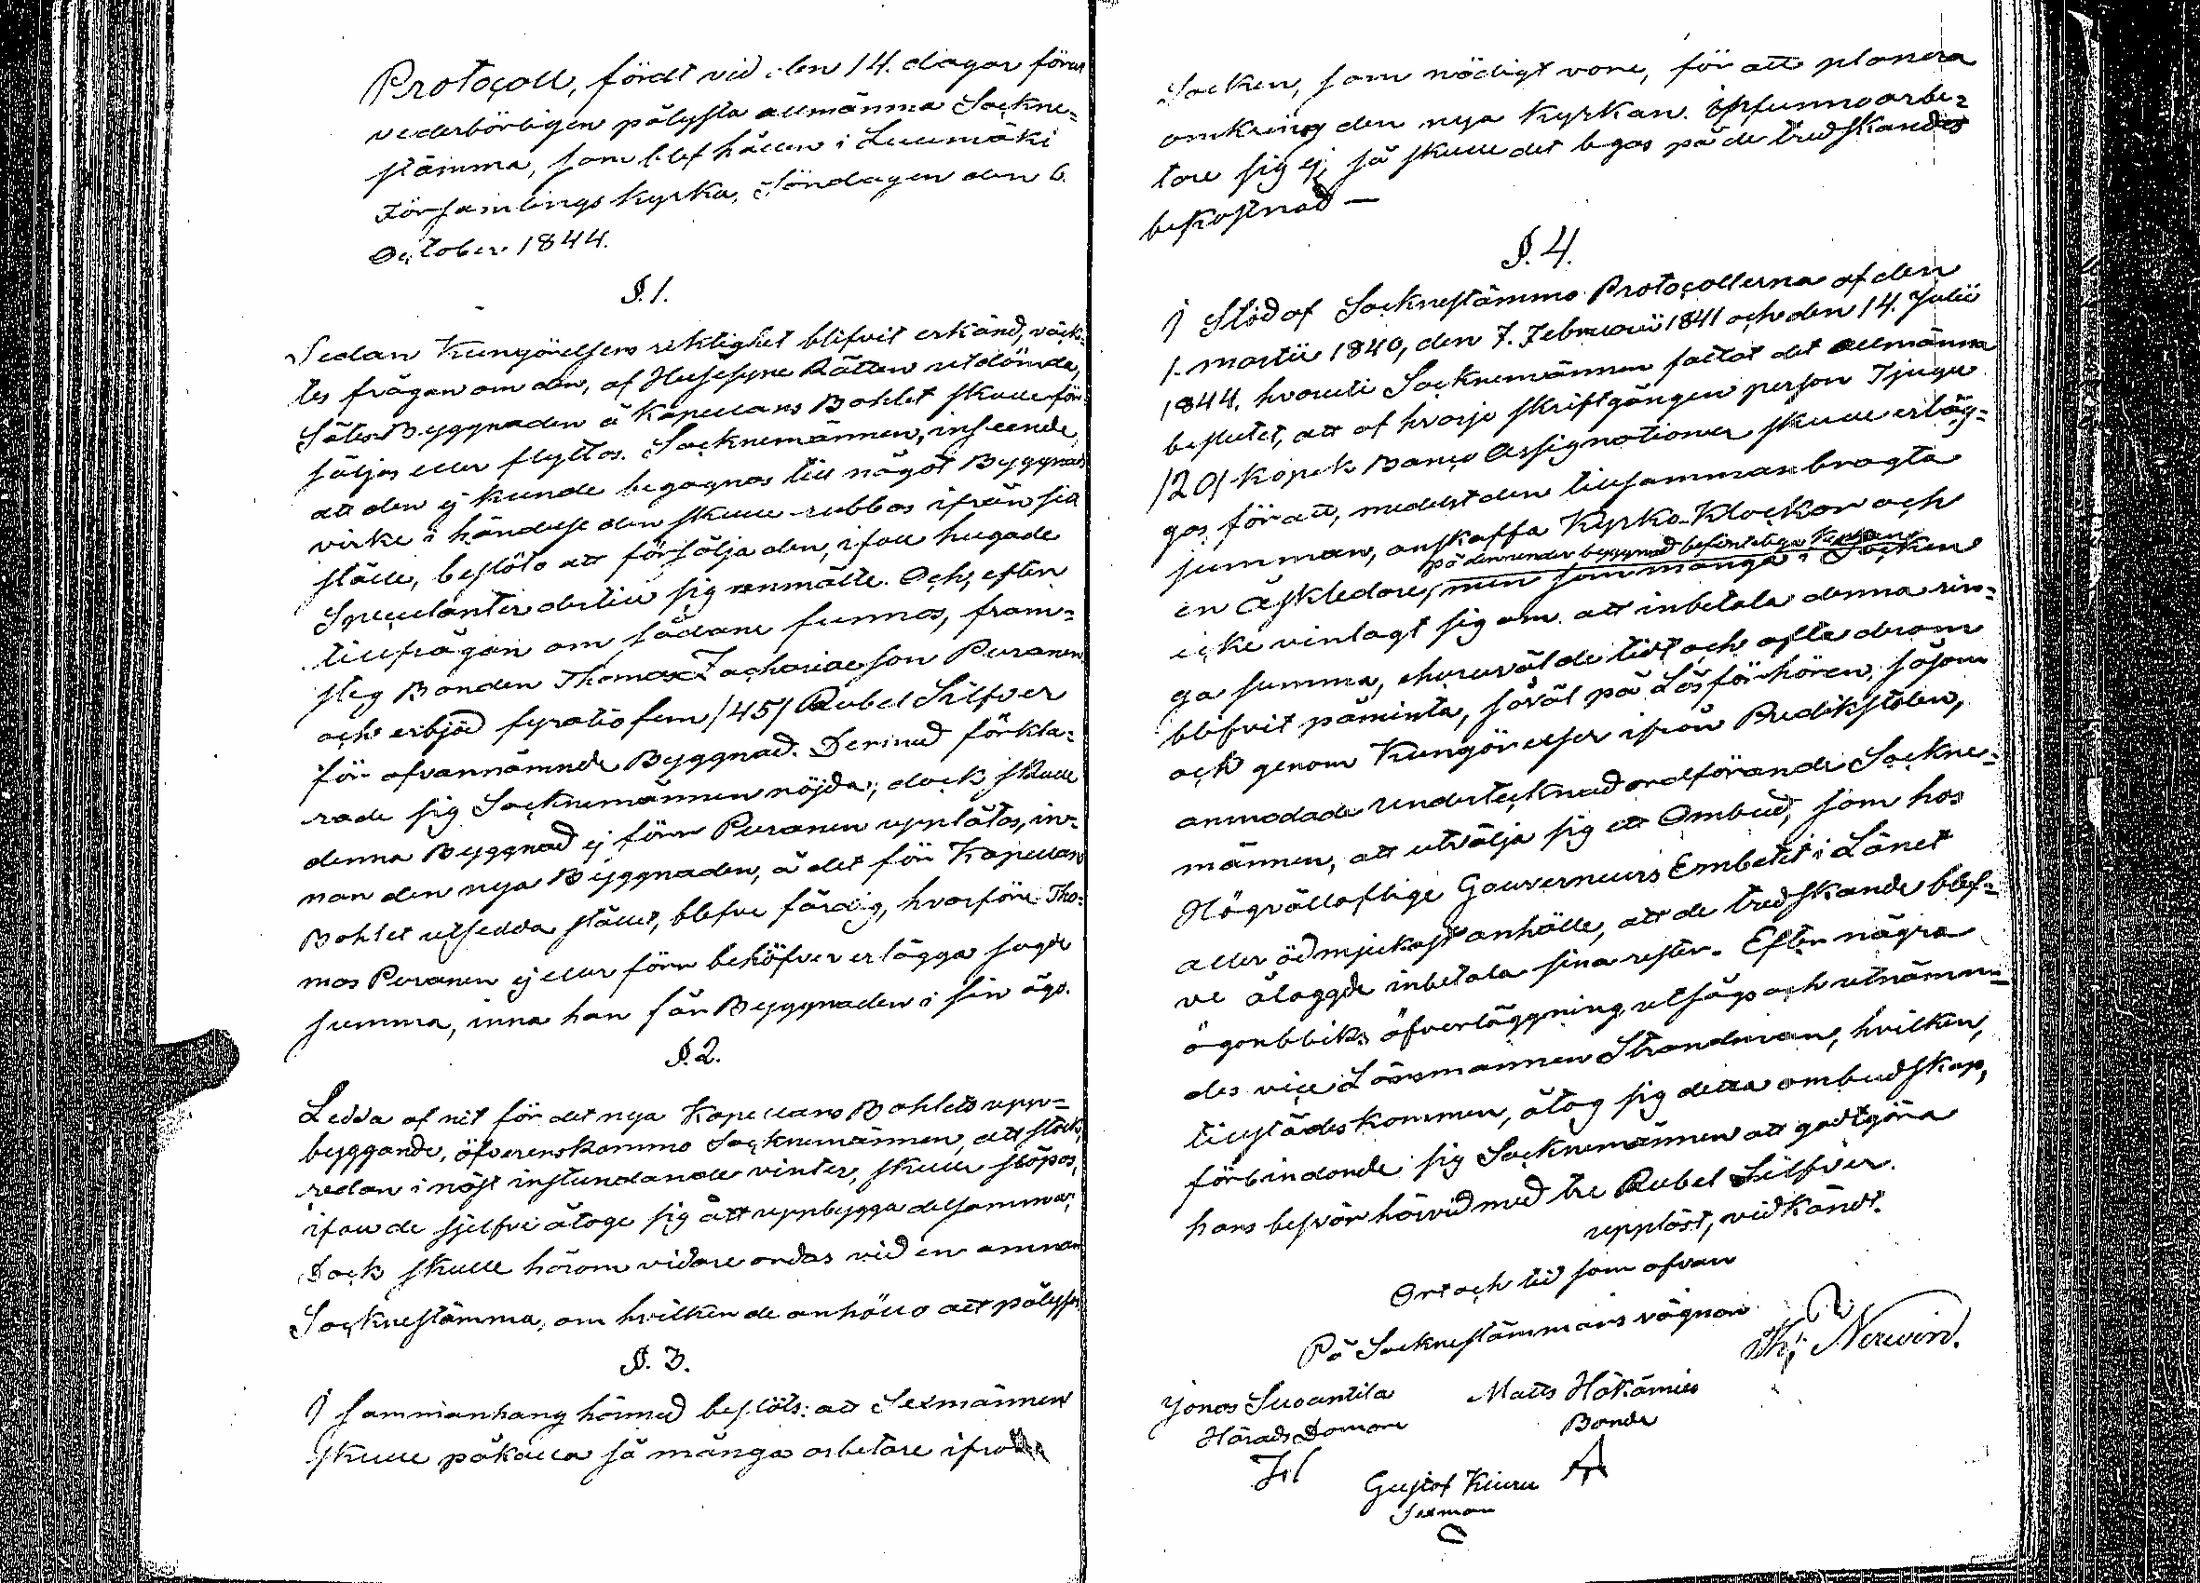 Protocoll, fördt vid den 14. dagar förut
vederbörligen pålysta allmänna Sockne=
stämma, som blef hållen i Luumäki
Församlings kyrka, Söndagen den 6.
October 1844.
§. 1.
Sedan Kungörelsens riktighet blifvit erkänd, väck-
tes frågan om den, af Husesyne Rätten utdömde,
Sätes Byggnaden å Kapellans Bohlet skulle för-
säljas eller flyttas. Socknemännen, inseende,
att den ej kunde begagnas till något Byggnads
virke i händelse den skulle rubbas ifrån sitt
ställe, beslöto att försälja den, ifall hugade
Speculanter dertill sig anmälte. Och, efter
tillfrågan om sådane funnos, fram=
steg Bonden Thomas Zachariae son Puranen
och erbjöd fyratio fem /45/ Rubel Silfver
för ofvannämnde Byggnad. Dermed förkla=
rade sig Socknemännen nöjda; dock skulle
denna Byggnad ej förr Puranen upplåtas, in-
nan den nya Byggnaden, å det för Kapellans
Bohlet utsedda stället, blefve färdig, hvarföre Tho-
mas Puranen ej eller förr behöfver erlägga sagde
summa, inna han får Byggnaden i sin ägo.
§. 2.
Ledda af nit för det nya Kapellans Bohlets upp=
byggande, öfverenskommo Socknemännen, att stock,
redan i näst instundande vinter, skulle släpas,
ifall de sjelfve åtoge sig att uppbygga detsamma;
Dock skulle härom vidare ordas vid en annan
Socknestämma, om hvilken de anhöllo att pålysas
§. 3.
I sammanhang härmed beslöts: att Sexmännen
skulle påkalla så många arbetare ifrån
Socken, som nödigt vore, för att planera
omkring den nya Kyrkan. Infunno arbe=
tare sig ej, så skulle det legas på de tredskandes
bekostnad —
§. 4.
I Stöd af Socknestämmo Protocollerna af den
1. Martii 1840, den 7. Februarii 1841 och den 14. Julii
1844, hvaruti Socknemännen fattat det allmänna
beslutet, att af hvarje skriftgången person Tjugu
/20/ Kopek Banco Assignationer skulle erläg=
gas för att, medelst den tillsammanbragta
summan, anskaffa Kyrko-Klockor och
på den under byggnad befinteliga Kyrkan
en Åskledare, men som många i Socken
icke vinlagt sig om att inbetala denna rin=
ga summa, ehuruväl de tidt och ofta derom
blifvit påminta, såväl på Läsförhören, såsom
ock genom Kungörelser ifrån Predikstolen,
anmodade undertecknad ordförande Sockne=
männen, att utvälja sig ett Ombud, som hos
Högvällofliga Gouverneurs Embetet i Länet
aller ödmjukast anhålle, att de tredskande blef=
ve ålaggde inbetala sina rester. Efter några
ögonblicks öfverläggning utsågs och utnämn=
des vice Länsmannen Strandman, hvilken,
tillstädes kommen, åtog sig detta ombudskap,
förbindande sig Socknemännen att godtgöra
hans besvär härvid med tre Rubel Silfver.
uppläst, vidkändt.
Ort och tid som ofvan
På Socknestämmans vägnar
Nerwin.
Jonas Suoantila
Matts Häkämies
Härads Domare
Bonde
Gustaf Kiuru
Sexman